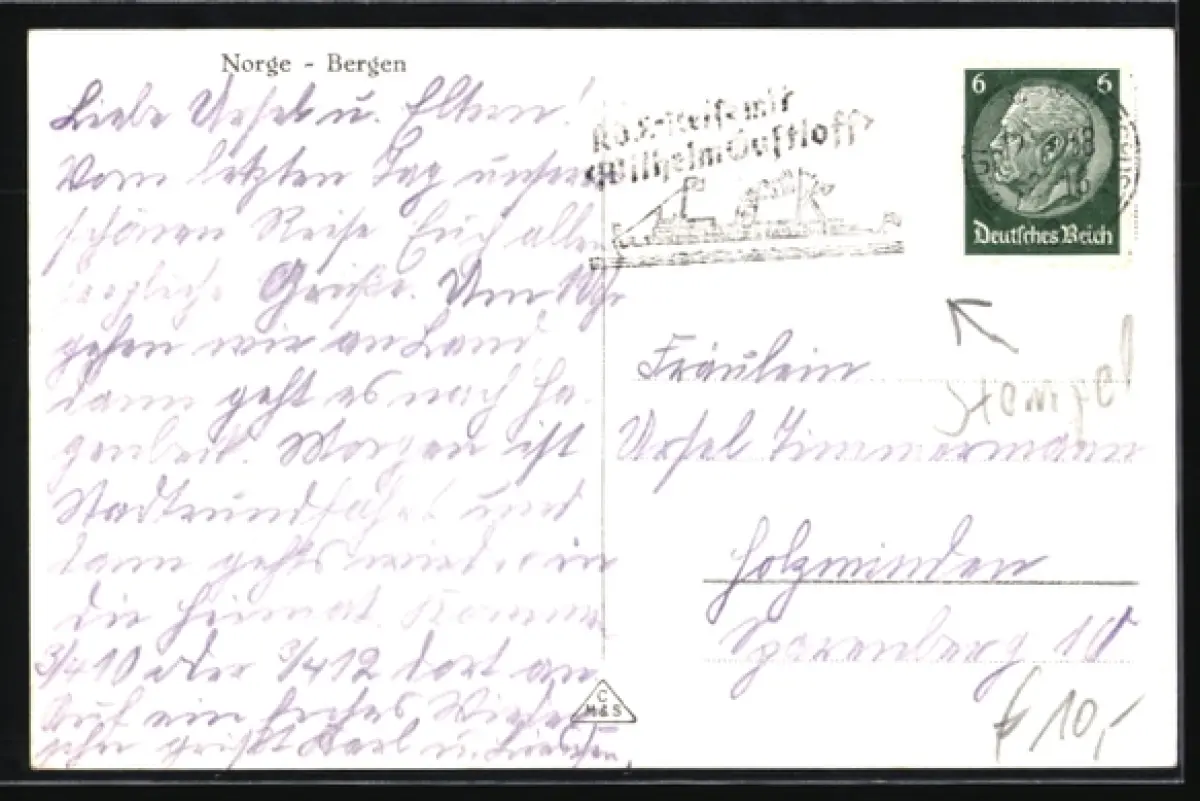 Norge - Bergen
Liebe Ursel u. Eltern!
Vom letzten Tag unserer
schönen Reise Euch allen
herzliche Grüße. Um 1 Uhr
gehen wir an Land
dann geht es nach Ha-
genbeck. Morgen ist
Stadtrundfahrt und
dann gehts wieder in
die Heimat. Kommen
3/4 10 oder 3/4 12 dort an
Auf ein frohes Wieder-
sehn grüßt Karl u. Lieschen
C
M&S
KdF-Reise mit
"Wilhelm Gustloff"
6 6
Deutsches Reich
Stempel
Fräulein
Ursel Zimmermann
Holzminden
Sparenberg 10
10,-